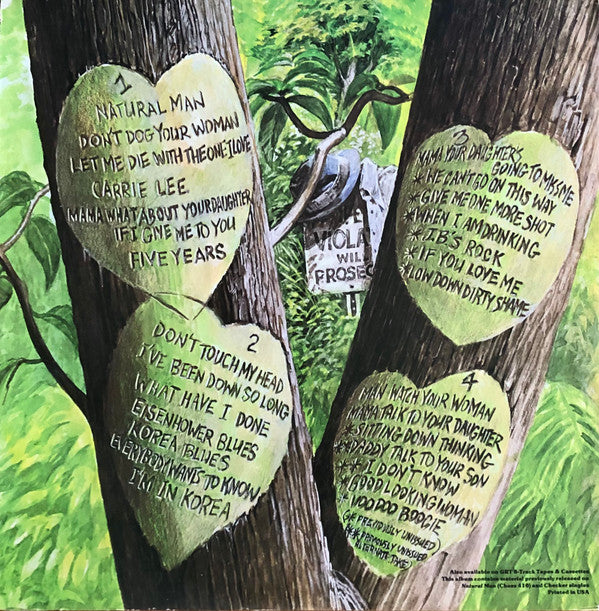 1
NATURAL MAN
DON'T DOG YOUR WOMAN
LET ME DIE WITH THE ONE I LOVE
CARRIE LEE
MAMA WHAT ABOUT YOUR DAUGHTER
IF I GIVE ME TO YOU
FIVE YEARS
2
DON'T TOUCH MY HEAD
I'VE BEEN DOWN SO LONG
WHAT HAVE I DONE
EISENHOWER BLUES
KOREA BLUES
EVERYBODY WANTS TO KNOW
I'M IN KOREA
VIOLA
WILL
PROSEC
3
MAMA YOUR DAUGHTER'S
GOING TO MISS ME
* HE CAN'T GO ON THIS WAY
* GIVE ME ONE MORE SHOT
* WHEN I AM DRINKING
* J.B'S ROCK
* IF YOU LOVE ME
* LOW DOWN DIRTY SHAME
4
MAN WATCH YOUR WOMAN
MAMA TALK TO YOUR DAUGHTER
* SITTING DOWN THINKING
* DADDY TALK TO YOUR SON
** I DON'T KNOW
* GOOD LOOKING WOMAN
* VOODOO BOOGIE
(* PREVIOUSLY UNISSUED
** PREVIOUSLY UNISSUED
ALTERNATE TAKE)
Also available on GRT 8-Track Tapes & Cassettes
This album contains material previously released on
Natural Man (Chess 410) and Checker singles
Printed in USA